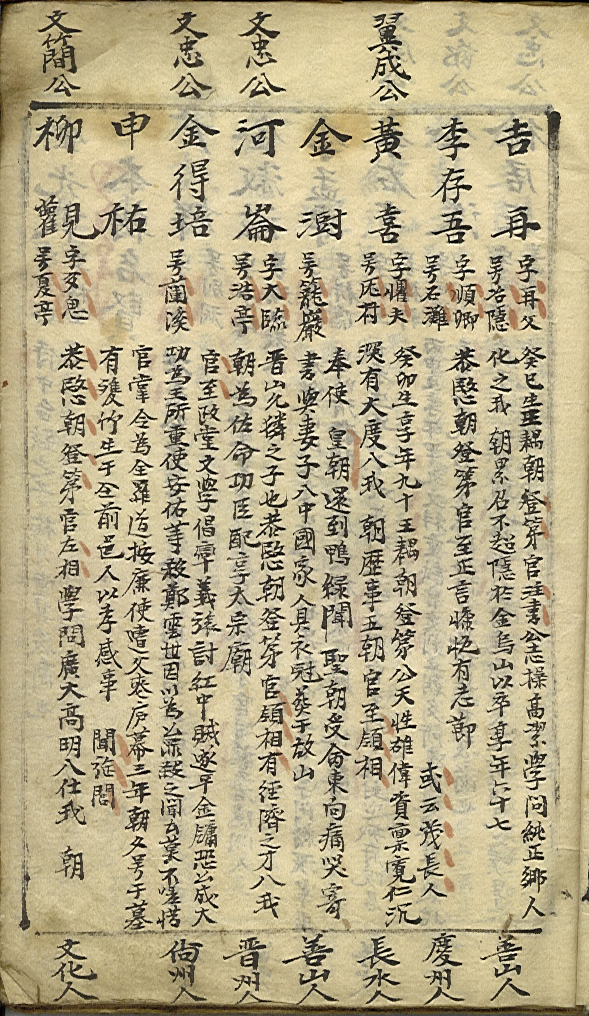 吉再 字再父 号冶隱 癸巳生王耦朝登第官注書公志操高潔學問純正鄉人
化之我 朝累召不起隱於金烏山以卒享年六十七 善山人
李存吾 字順卿 号石灘 恭愍朝登第官至正言慷慨有志節 或云茂長人 慶州人
翼成公 黃喜 字懼夫 号厖村 癸卯生享年九十王耦朝登第公天性雄偉資稟寬仁沉
深有大度入我 朝歷事五朝官至領相 長水人
金澍 号籠巖 奉使 皇朝還到鴨綠聞 聖朝受命東向痛哭寄
書與妻子入中國家人具衣冠葬于故山 善山人
文忠公 河崙 字大臨 号浩亭 晋山允潾之子也恭愍朝登第官領相有經濟之才入我
朝為佐命功臣配享太宗廟 晋州人
文忠公 金得培 号蘭溪 官至政堂文學倡率義旅討紅巾賊遂平金鏞恐公成大
功為王所重使安佑等殺鄭雲世因以為並殺之聞者莫不嗟惜 尙州人
申祐 官掌令為全羅道按廉使嘗父喪廬墓三年朝夕号于墓
有雙竹生于前邑人以孝感事 聞旌閭
文簡公 柳 号夏亭 恭愍朝登第官左相學問廣大高明入仕我 朝 文化人